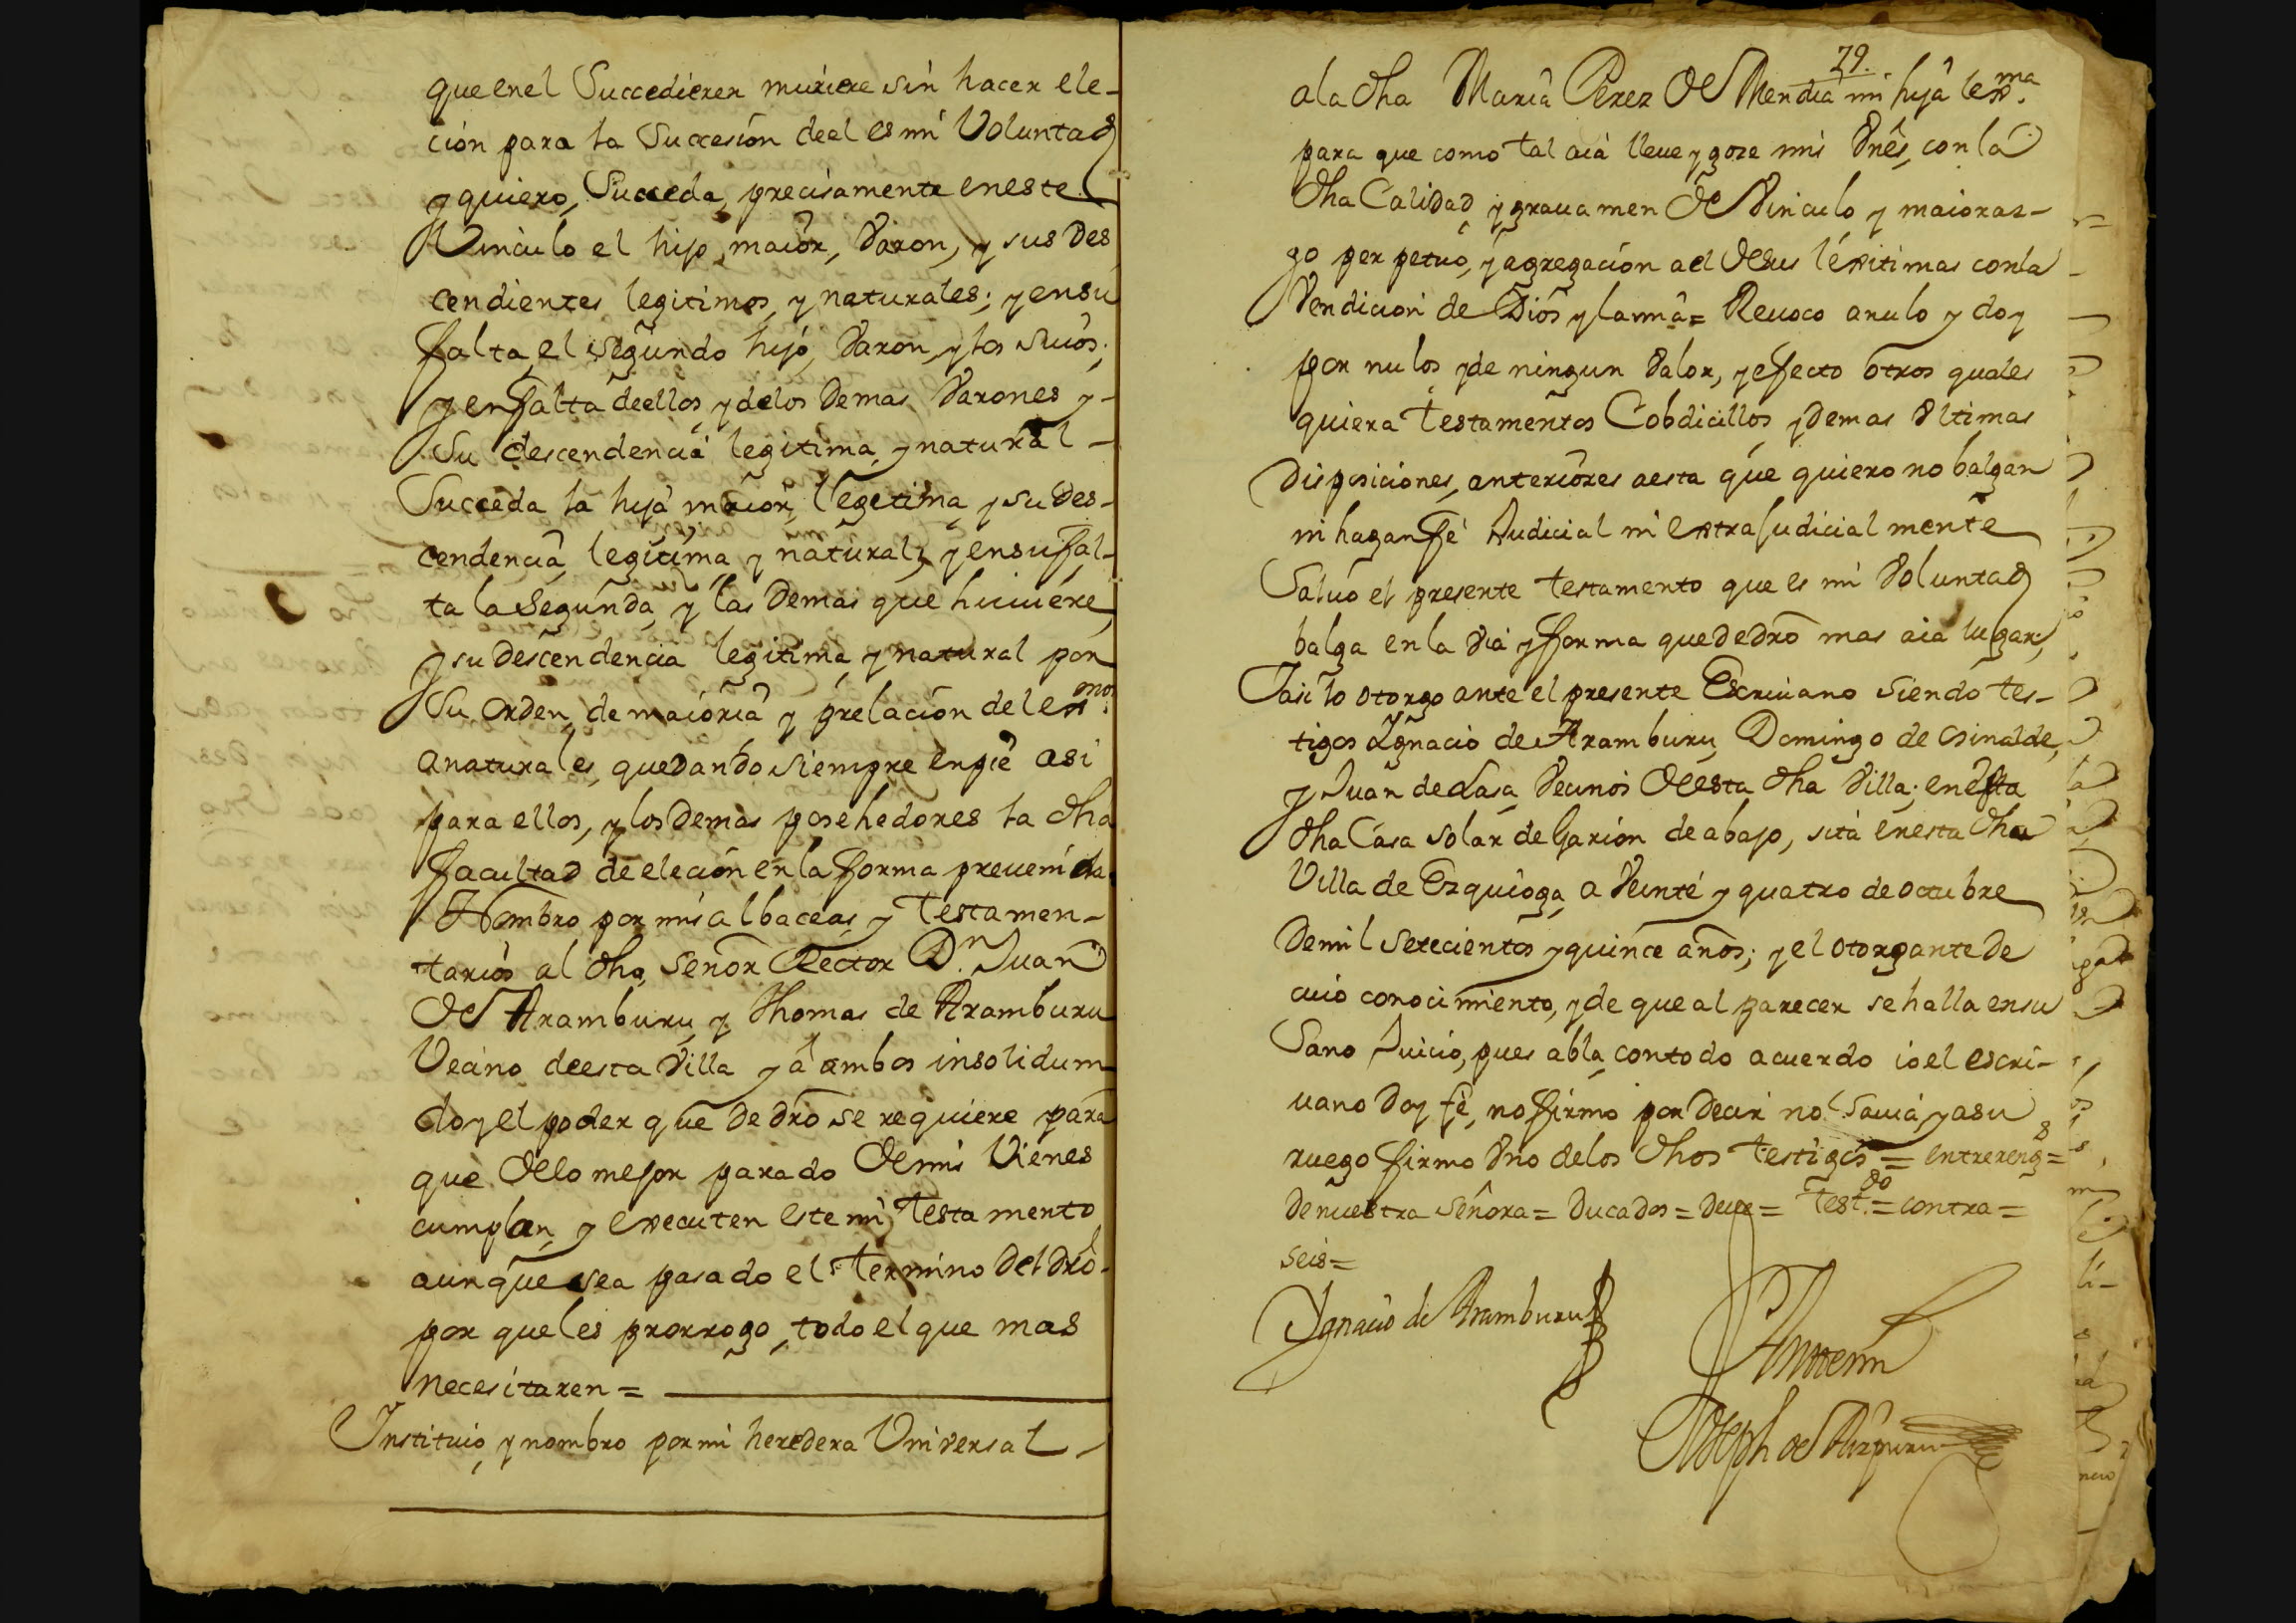 que en el Succedieren muriere sin hacer ele-
ción para la Succesion de el es mi Voluntad
y quiero, Succeda, precisamente en este
Vinculo el hijo maior, Varon, y sus Des
cendientes legitimos, y naturales; y en su
falta, el Segundo hijo, Varon, y los suios;
y en falta de ellos, y de los Demas Varones y-
Su descendencia legitima, y natural -
Succeda la hija maior, legetima y su Des-
cendencia, legitima y natural, y en su fal-
ta la Segunda, y las Demas que huviere,
y su Descendencia legitima, y natural por
Su orden, de maioria y prelacion de lexmos.
a naturales, quedando siempre en pie asi
para ellos, y los Demas posehedores la dha
facultad de elecion en la forma prevenida.
Nombro por mis albaceas, y Testamen-
tarios al dho, Señor Rector Dn. Juan
de Aramburu, y Thomas de Aramburu
Vecino de esta Villa y a ambos insolidum
doy el poder que De dro se requiere para
que de lo mejor parado de mis Vienes
cumplan, y executen este mi Testamento
aunque sea pasado el Termino del dro.
por que les prorrogo, todo el que mas
necesitaren =
Instituio, y nombro por mi heredera Universal -
79.
a la dha Maria Perez de Mendia mi hija lexma.
para que como tal aia lleve y goze mis Vnes, con la
dha Calidad y gravamen de Vinculo y maioras-
go perpetuo, y agregacion a el de sus lexitimas con la
Vendicion de Dios y la mia = Revoco anulo y doy
por nulos y de ningun Valor, y efecto otros quales
quiera Testamentos Cobdicillos, y Demas Vltimas
Disposiciones, anteriores a esta que quiero no balgan
ni hagan fe Judicial ni extrajudicialmente
Salvo el presente Testamento que es mi Voluntad
balga en la via y forma que de dro mas aia lugar,
Y asi lo otorgo ante el presente Escriuano siendo tes-
tigos Ygnacio de Aramburu, Domingo de Osinalde,
y Juan de Lasa, Vecinos de esta dha Villa; en esta
dha Casa Solar de Garion de abajo, sita en esta dha
Villa de Ezquioga, a Veinte y quatro de octubre
De mil setecientos y quince años; y el otorgante de
cuio conocimiento, y de que al parecer se halla en su
Sano Juicio, pues abla, con todo acuerdo io el escri-
uano Doy fe, no firmo por Decir no Savia, y a su
ruego firmo Vno de los dhos Testigos = entrereng =
De nuestra Señora = Ducados = Deve = Test.do = contra =
seis =
Ygnacio de Aramburu
Antemi
Joseph de Aizpuru